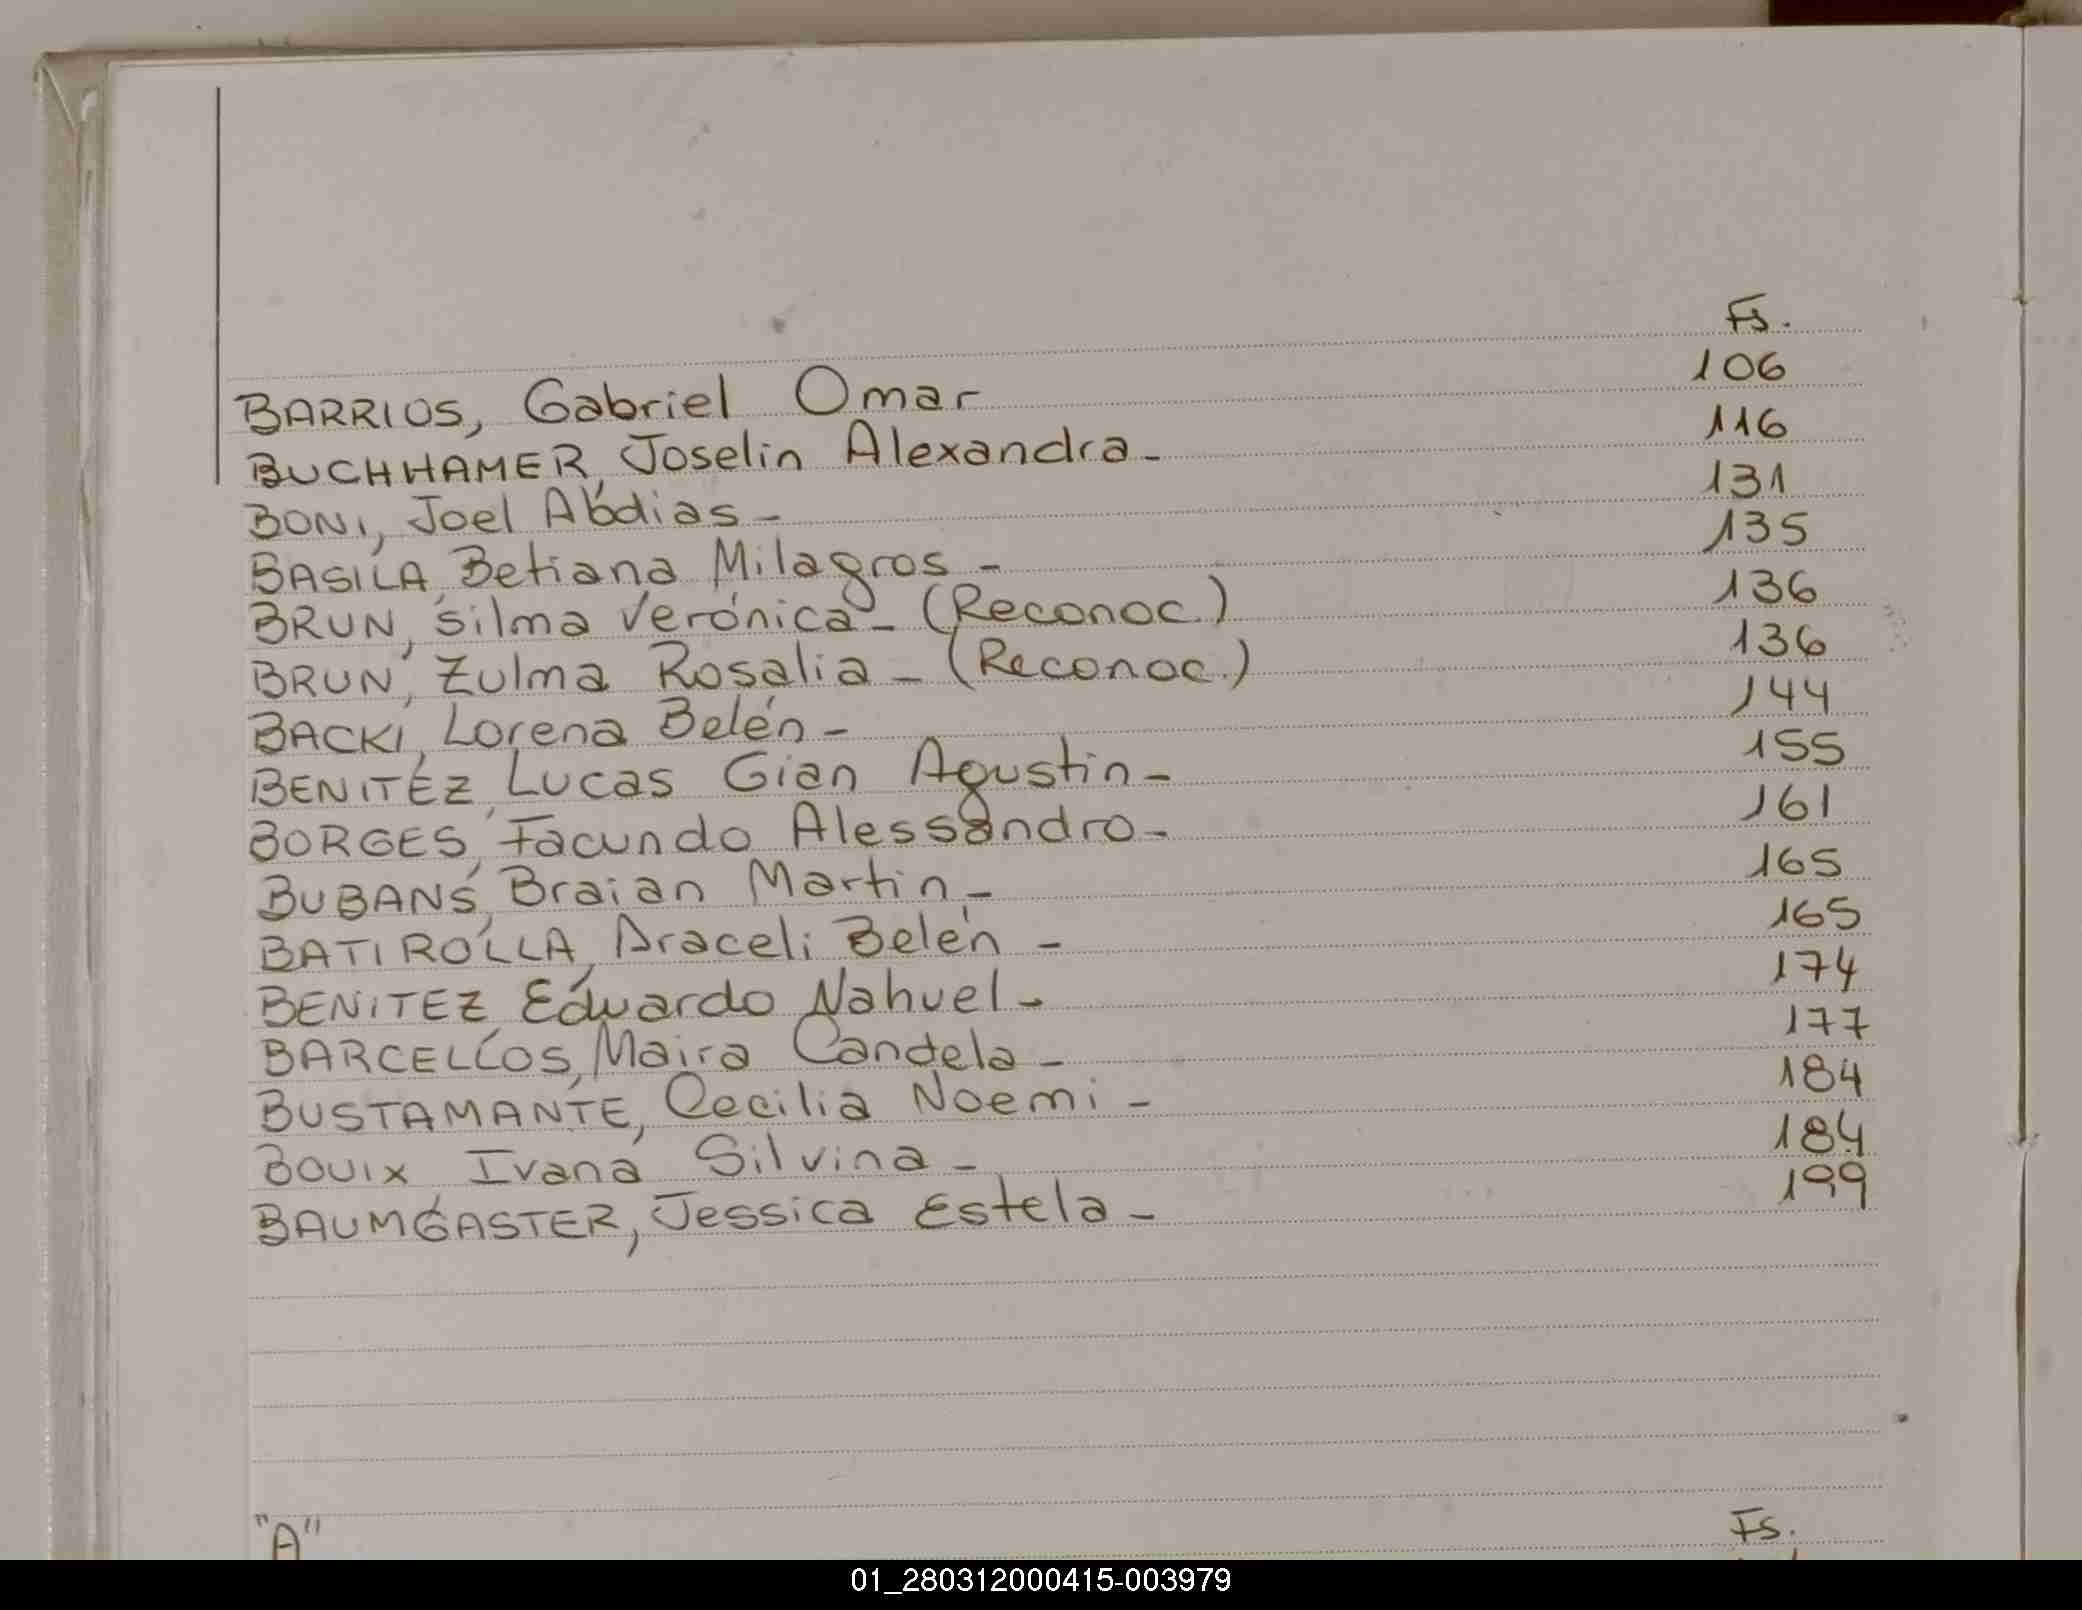 Fs.
BARRIOS, Gabriel Omar 106
BUCHHAMER, Joselin Alexandra- 116
BONI, Joel Abdias- 131
BASILA, Betiana Milagros - 135
BRUN, Silma Verónica- (Reconoc.) 136
BRUN, Zulma Rosalia - (Reconoc.) 136
BACKI, Lorena Belén- 144
BENITEZ, Lucas Gian Agustin- 155
BORGES, Facundo Alessandro- 161
BUBANS, Braian Martin- 165
BATIROLLA, Araceli Belén - 165
BENITEZ, Eduardo Nahuel- 174
BARCELLOS, Maira Candela - 177
BUSTAMANTE, Cecilia Noemi - 184
BOUIX Ivana Silvina- 184
BAUMGASTER, Jessica Estela- 199
"A" Fs.
01_280312000415-003979